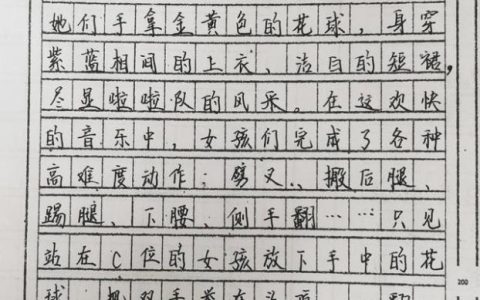 她们手拿金黄色的花球，身穿
紫蓝相间的上衣、洁白的短裙，
尽显啦啦队的风采。在这欢快
的音乐中，女孩们完成了各种
高难度动作：劈叉、搬后腿、
踢腿、下腰、侧手翻……只见
站在C位的女孩放下手中的花
球
200